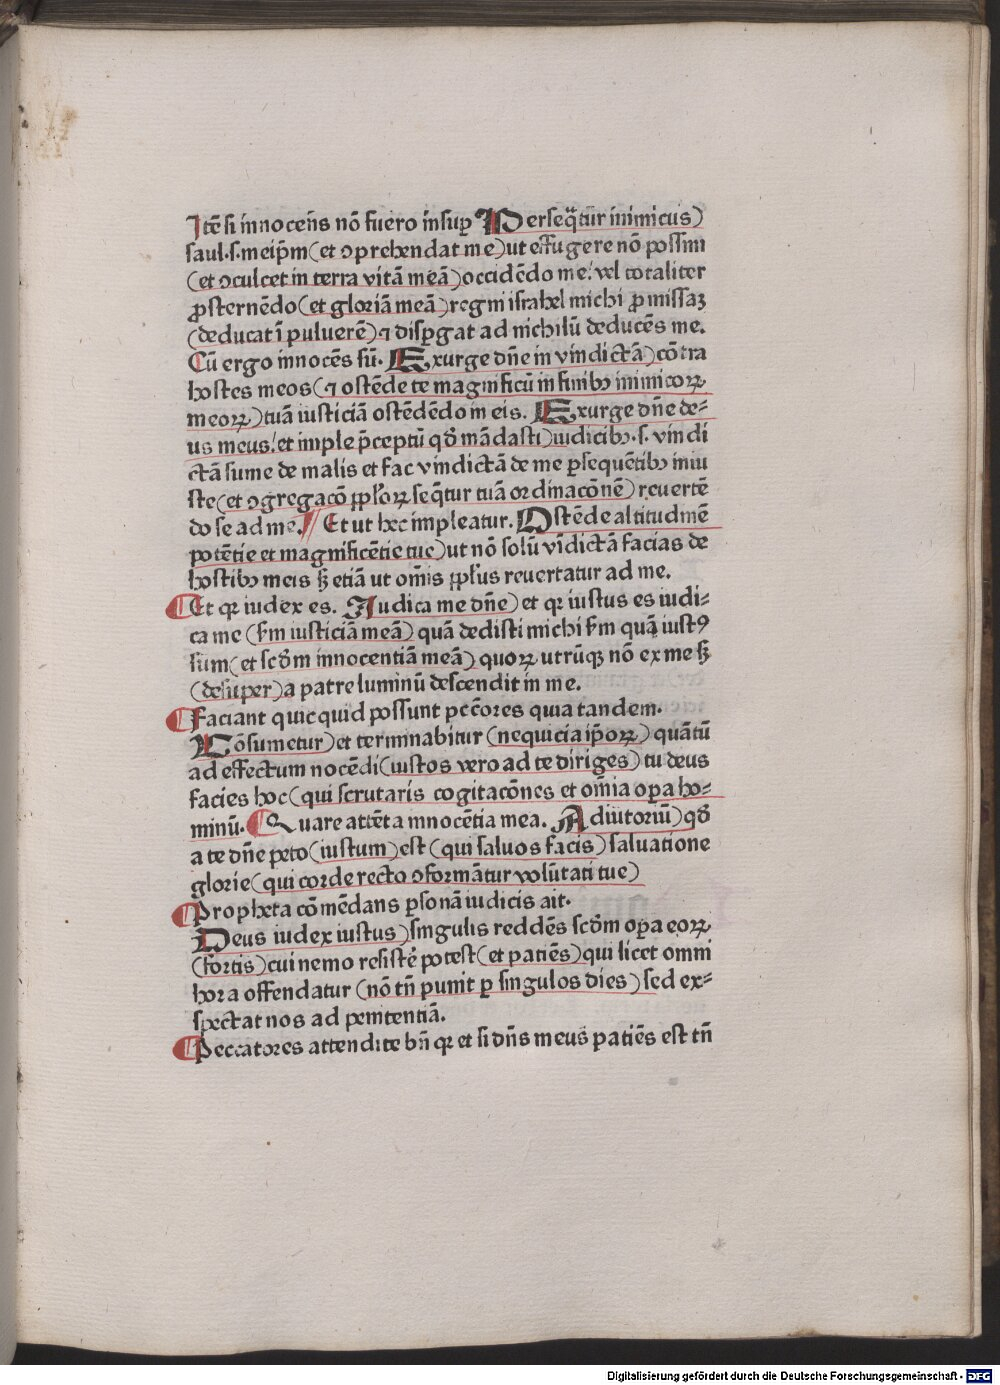 Itē si innocen̄s nō fuero insuꝑ Perseq̄tur inimicus)
saul.s.meip̄m (et ꝯprehendat me) ut effugere nō possim
(et ꝯculcet in terra vitā meā) occidēdo me: vel totaliter
ꝓsternēdo (et gloriā meā) regni israhel michi ꝓmissaꝫ
(deducat ī puluerē) ⁊ disꝑgat ad nichilū deducēs me.
Cū ergo innocēs sū. Exurge dn̄e in vindictā) cōtra
hostes meos (⁊ ostēde te magnificū in finibꝰ inimicoꝝ
meoꝝ) tuā iusticiā ostēdēdo in eis. Exurge dn̄e de-
us meus: et imple p̄ceptū qd̄ mādasti) iudicibꝰ.s. vindi
ctā sume de malis et fac vindictā de me ꝑsequētibꝰ iniu
ste (et ꝯgregacō pp̄loꝝ seq̄tur tuā ordinacōnē) reuertē
do se ad me. Et ut hec impleatur. Ostēde altitudinē
potētie et magnificētie tue) ut nō solū vīdictā facias de
hostibꝰ meis sꝫ etiā ut om̄is pp̄lus reuertatur ad me.
Et qꝛ iudex es. Iudica me dn̄e) et qꝛ iustus es iudi-
ca me (sm̄ iusticiā meā) quā dedisti michi sm̄ quā iustꝰ
sum (et scd̄m innocentiā meā) quoꝝ utrūqꝫ nō ex me sꝫ
(desuper) a patre luminū descendit in me.
Faciant quicquid possunt pccōres quia tandem.
Cōsumetur) et terminabitur (nequicia ip̄oꝝ) quātū
ad effectum nocēdi (iustos vero ad te diriges) tu deus
facies hoc (qui scrutaris cogitacōnes et om̄ia oꝑa ho-
minū. Quare attēta innocētia mea. Adiutoriū) qd̄
a te dn̄e peto (iustum) est (qui saluos facis) saluatione
glorie (qui corde recto ꝯformātur volūtati tue)
Propheta cōmēdans ꝑsonā iudicis ait.
Deus iudex iustus) singulis reddēs scd̄m oꝑa eoꝝ
(fortis) cui nemo resistē potest (et patiēs) qui licet omni
hora offendatur (nō tn̄ punit ꝑ singulos dies) sed ex-
spectat nos ad penitentiā.
Peccatores attendite bn̄ qꝛ et si dn̄s meus patiēs est tn̄
Digitalisierung gefördert durch die Deutsche Forschungsgemeinschaft - DFG